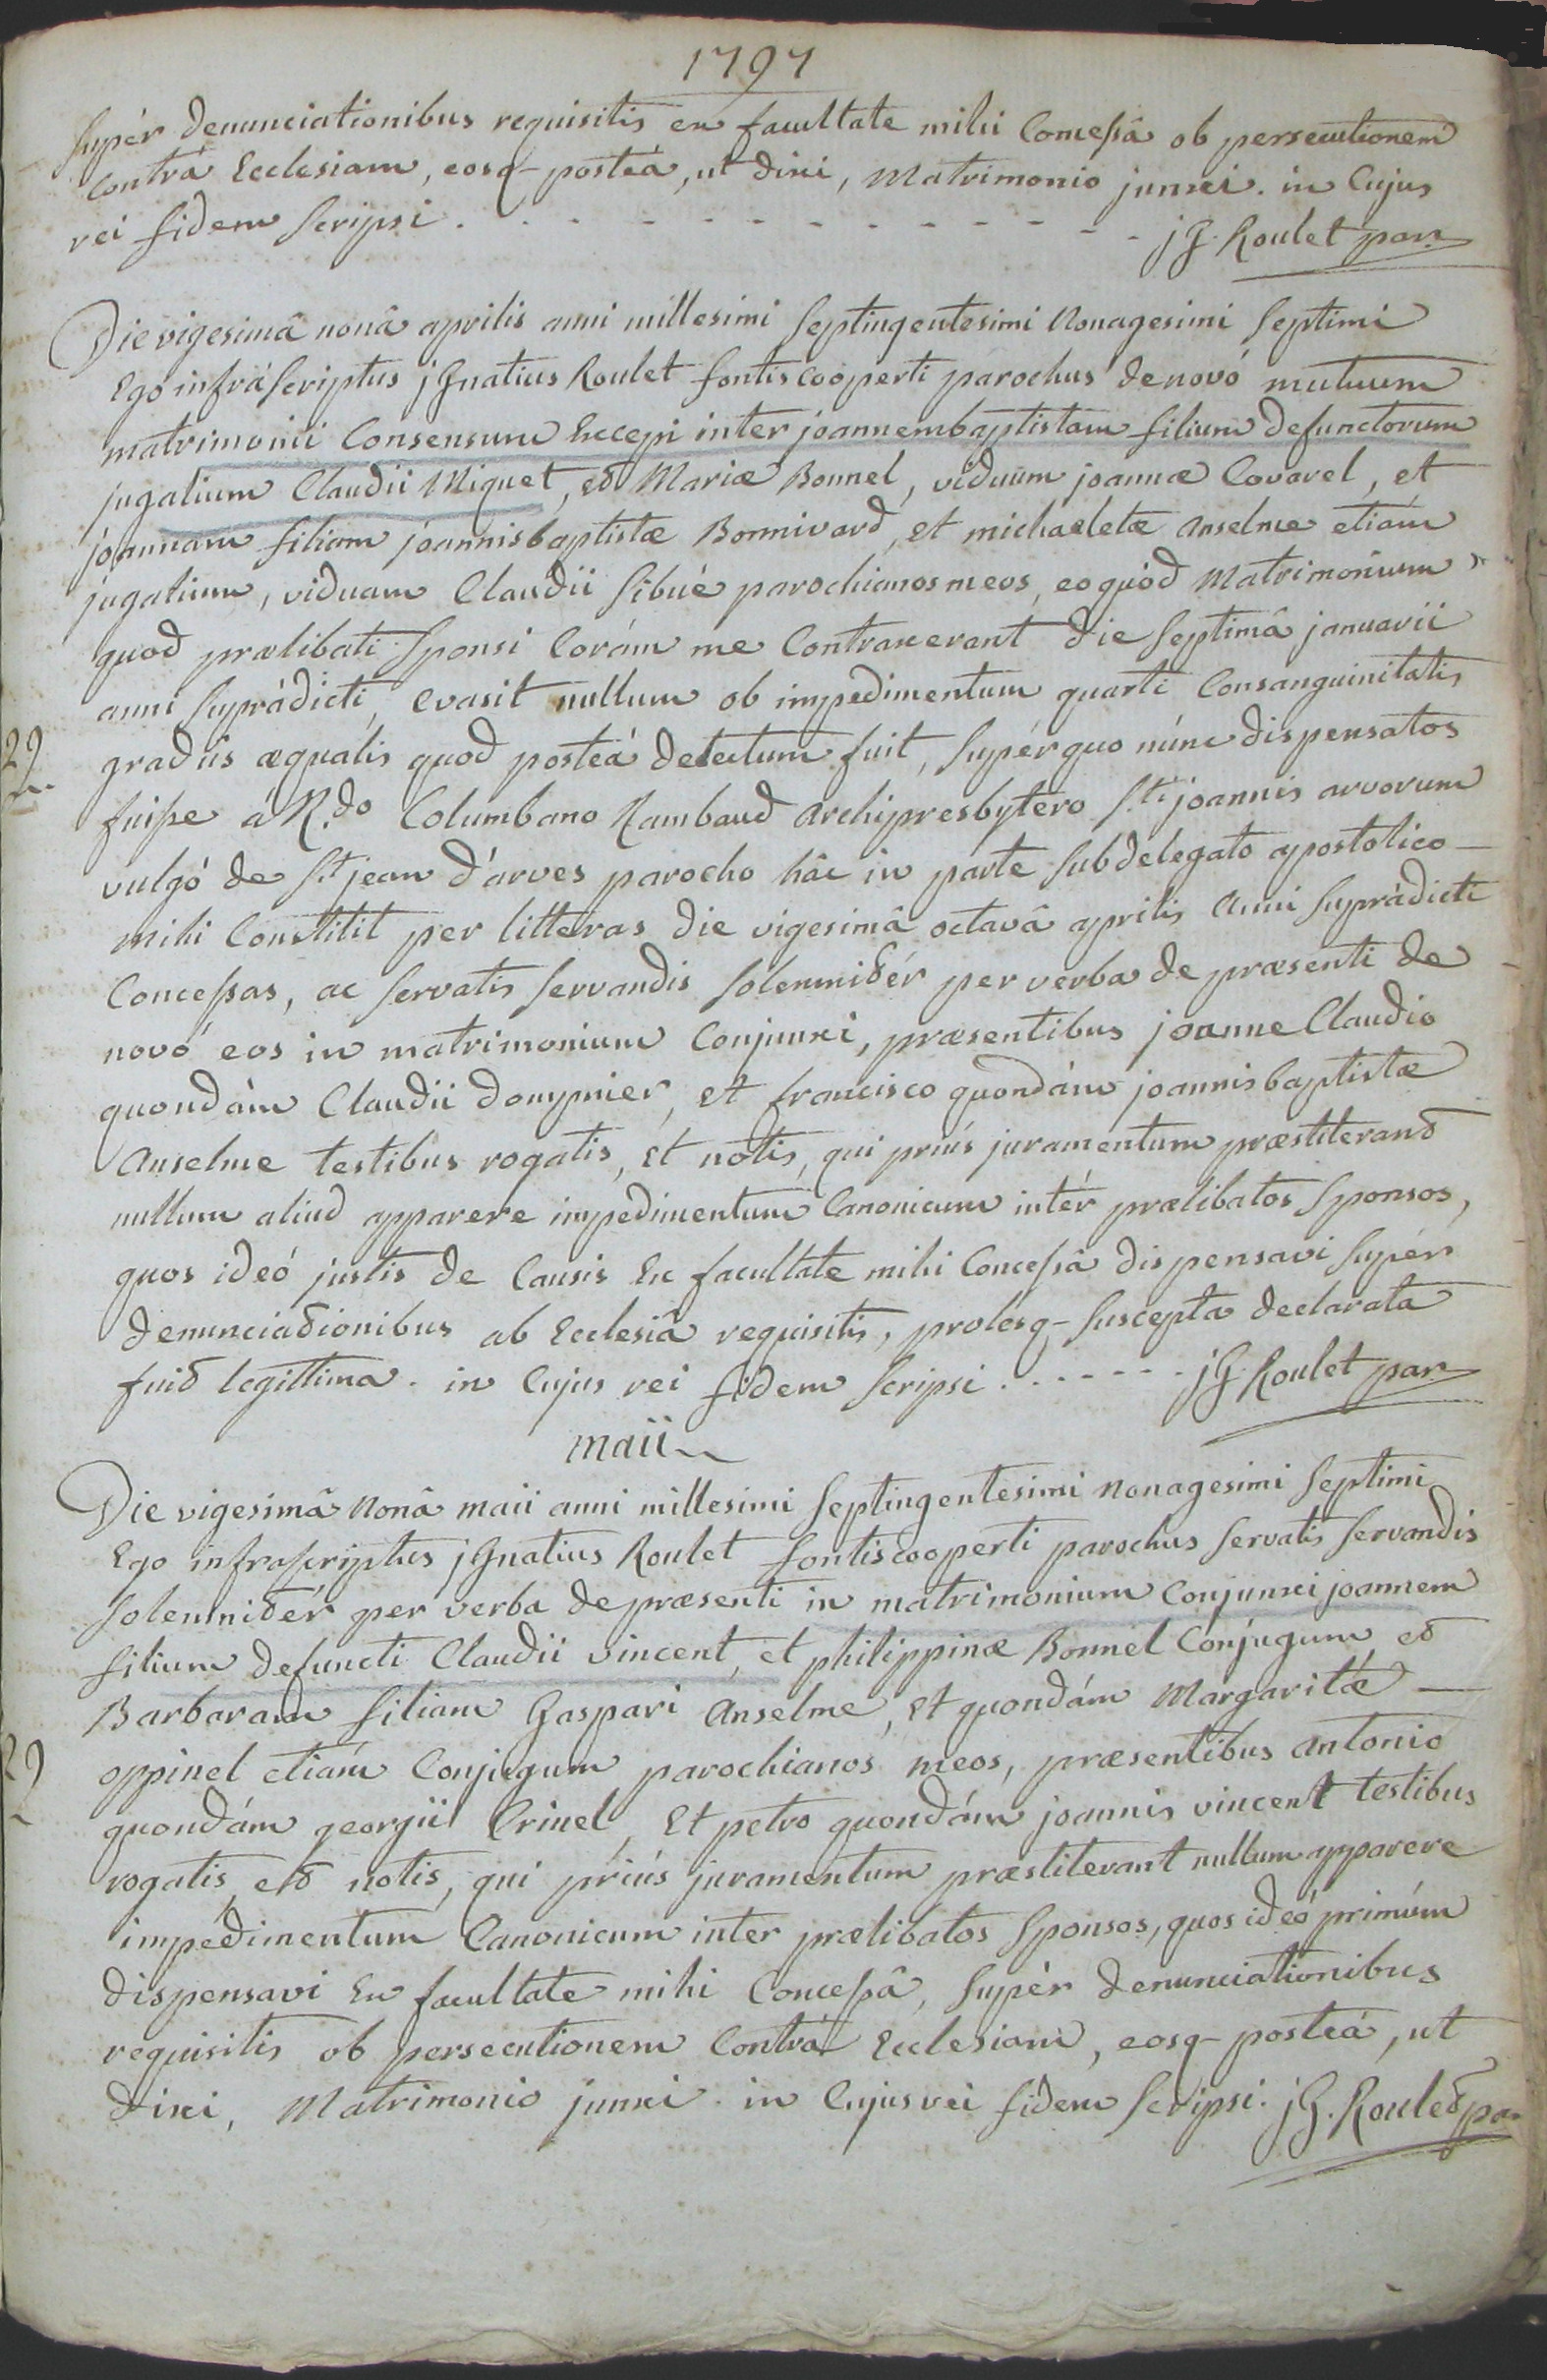 1797
Supér denunciationibus requisitis ex facultate mihi Concessâ ob persecutionem
Contrá Ecclesiam, eosq- posteá, ut dixi, Matrimonio junxi. in Cujus
rei fidem Scripsi . - - - - - - - - - - - jG. Roulet par
Die vigesimâ nonâ aprilis anni millesimi Septingentesimi Nonagesimi Septimi
Ego infráscriptus jGnatius Roulet fontiscooperti parochus denovó mutuum
matrimonii Consensum Excepi inter joannembaptistam filium defunctorum
jugalium Claudii Miquet, et Mariæ Bonnel, viduum joannæ Covarel, et
joannam filiam joannisbaptistæ Bonnivard, et michaeletæ Anselme etiám
jugalium, viduam Claudii Sibué parochianos meos, eo quód Matrimonium
quod prælibati Sponsi Corám me Contraxerant die Septimâ januarii
anni Suprádicti, evasit nullum ob impedimentum quarti Consanguinitatis
29
gradûs æqualis quod posteá detectum fuit, Supér quo núnc dispensatos
fuisse á R.do Columbano Rambaud Archipresbytero S.ti joannis arvorum
vulgó de S.t jean d'arves parocho hâc in parte Subdelegato apostolico -
mihi Constitit per litteras die vigesimâ octavâ aprilis Anni Suprádicti
Concessas, ac Servatis Servandis Solemnitér per verba de præsenti de
novó eos in matrimonium Conjunxi, præsentibus joanne Claudio
quondám Claudii Dompnier, et francisco quondám joannisbaptistæ
Anselme testibus rogatis, et notis, qui priús juramentum præstiterant
nullum aliud apparere impedimentum Canonicum intér prælibatos Sponsos,
quos ideó justis de Causis Ex facultate mihi Concessâ dispensavi Supér
denunciationibus ab Ecclesiâ requisitis, prolesq- Suscepta declarata
fuit legittima. in Cujus rei fidem Scripsi . - - - - - - jG. Roulet par
maii
Die vigesimâ Nonâ maii anni millesimi Septingentesimi Nonagesimi Septimi
Ego infrascriptus jGnatius Roulet fontiscooperti parochus Servatis Servandis
Solemnitér per verba de præsenti in matrimonium Conjunxi joannem
filium defuncti Claudii vincent, et philippinæ Bonnel Conjugum et
Barbaram filiam Gaspari Anselme, et quondám Margaritæ -
29
oppinel etiám Conjugum parochianos meos, præsentibus Antonio
quondám georgii Crinel, Et petro quondám joannis vincent testibus
rogatis, et notis, qui priús juramentum præstiterant nullum apparere
impédimentum Canonicum inter prælibatos Sponsos, quos ideó primúm
dispensavi Ex facultate mihi Concessâ, Supér denunciationibus
requisitis ob persecutionem Contrá Ecclesiam, eosq- posteá, ut
dixi, Matrimonio junxi. in Cujus rei fidem Scripsi. jG. Roulet par